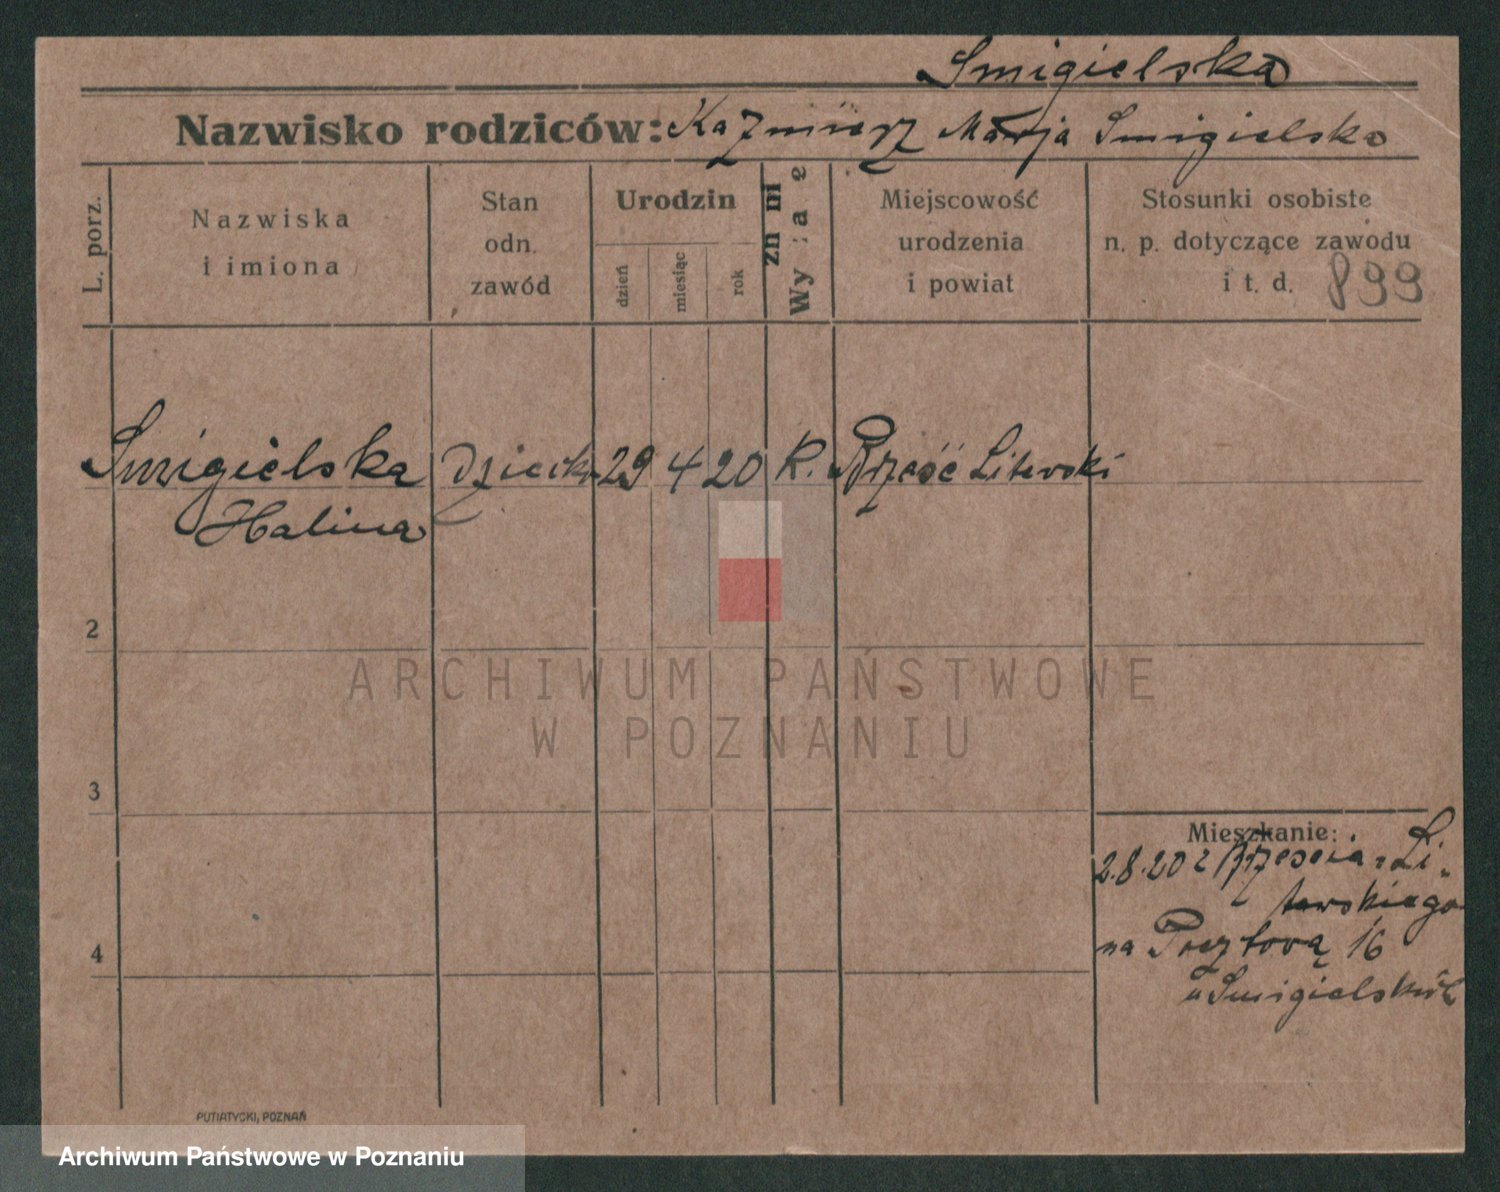 Smigielska
Nazwisko rodziców: Kazmierz Marja Smigielska
L. porz.
Nazwiska
i imiona
Stan
odn.
zawód
Urodzin
dzień
miesiąc
rok
Wyzna
nie
Miejscowość
urodzenia
i powiat
Stosunki osobiste
n. p. dotyczące zawodu
i t. d. 899
Smigielska dziecko 29 4 20 R. Brześć Litewski
Halina
2
3
4
Mieszkanie:
2.8.20 z Brześcia-Li-
tewskiego
na Pocztową 16
u Smigielskich
PUTIATYCKI, POZNAŃ
ARCHIWUM PAŃSTWOWE
W POZNANIU
Archiwum Państwowe w Poznaniu